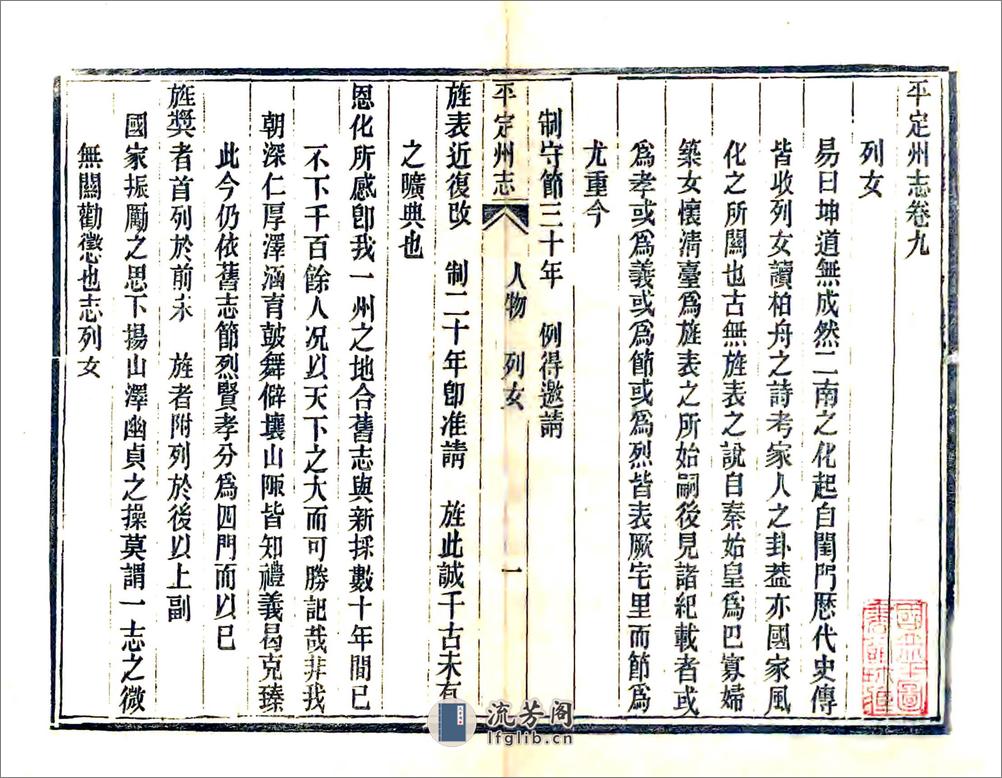 平定州志卷九
列女
易曰坤道無成然二南之化起自閨門歷代史傳
皆收列女讀柏舟之詩考家人之卦葢亦國家風
化之所關也古無旌表之說自秦始皇爲巴寡婦
築女懷淸臺爲旌表之所始嗣後見諸紀載者或
爲孝或爲義或爲節或爲烈皆表厥宅里而節爲
尤重今
制守節三十年 例得邀請
平定州志 人物 列女 一
旌表近復改 制二十年卽准請 旌此誠千古未有
之曠典也
恩化所感卽我一州之地合舊志與新採數十年間已
不下千百餘人况以天下之大而可勝記哉非我
朝深仁厚澤涵育鼓舞僻壤山陬皆知禮義曷克臻
此今仍依舊志節烈賢孝分爲四門而以已
旌奬者首列於前未 旌者附列於後以上副
國家振勵之思下揚山澤幽貞之操莫謂一志之微
無關勸懲也志列女
流芳阁
lfglib.cn